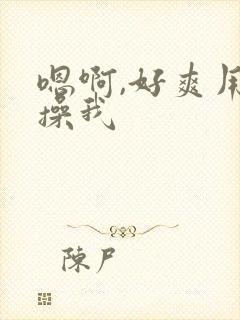 嗯啊,好爽用
操我
陳尸